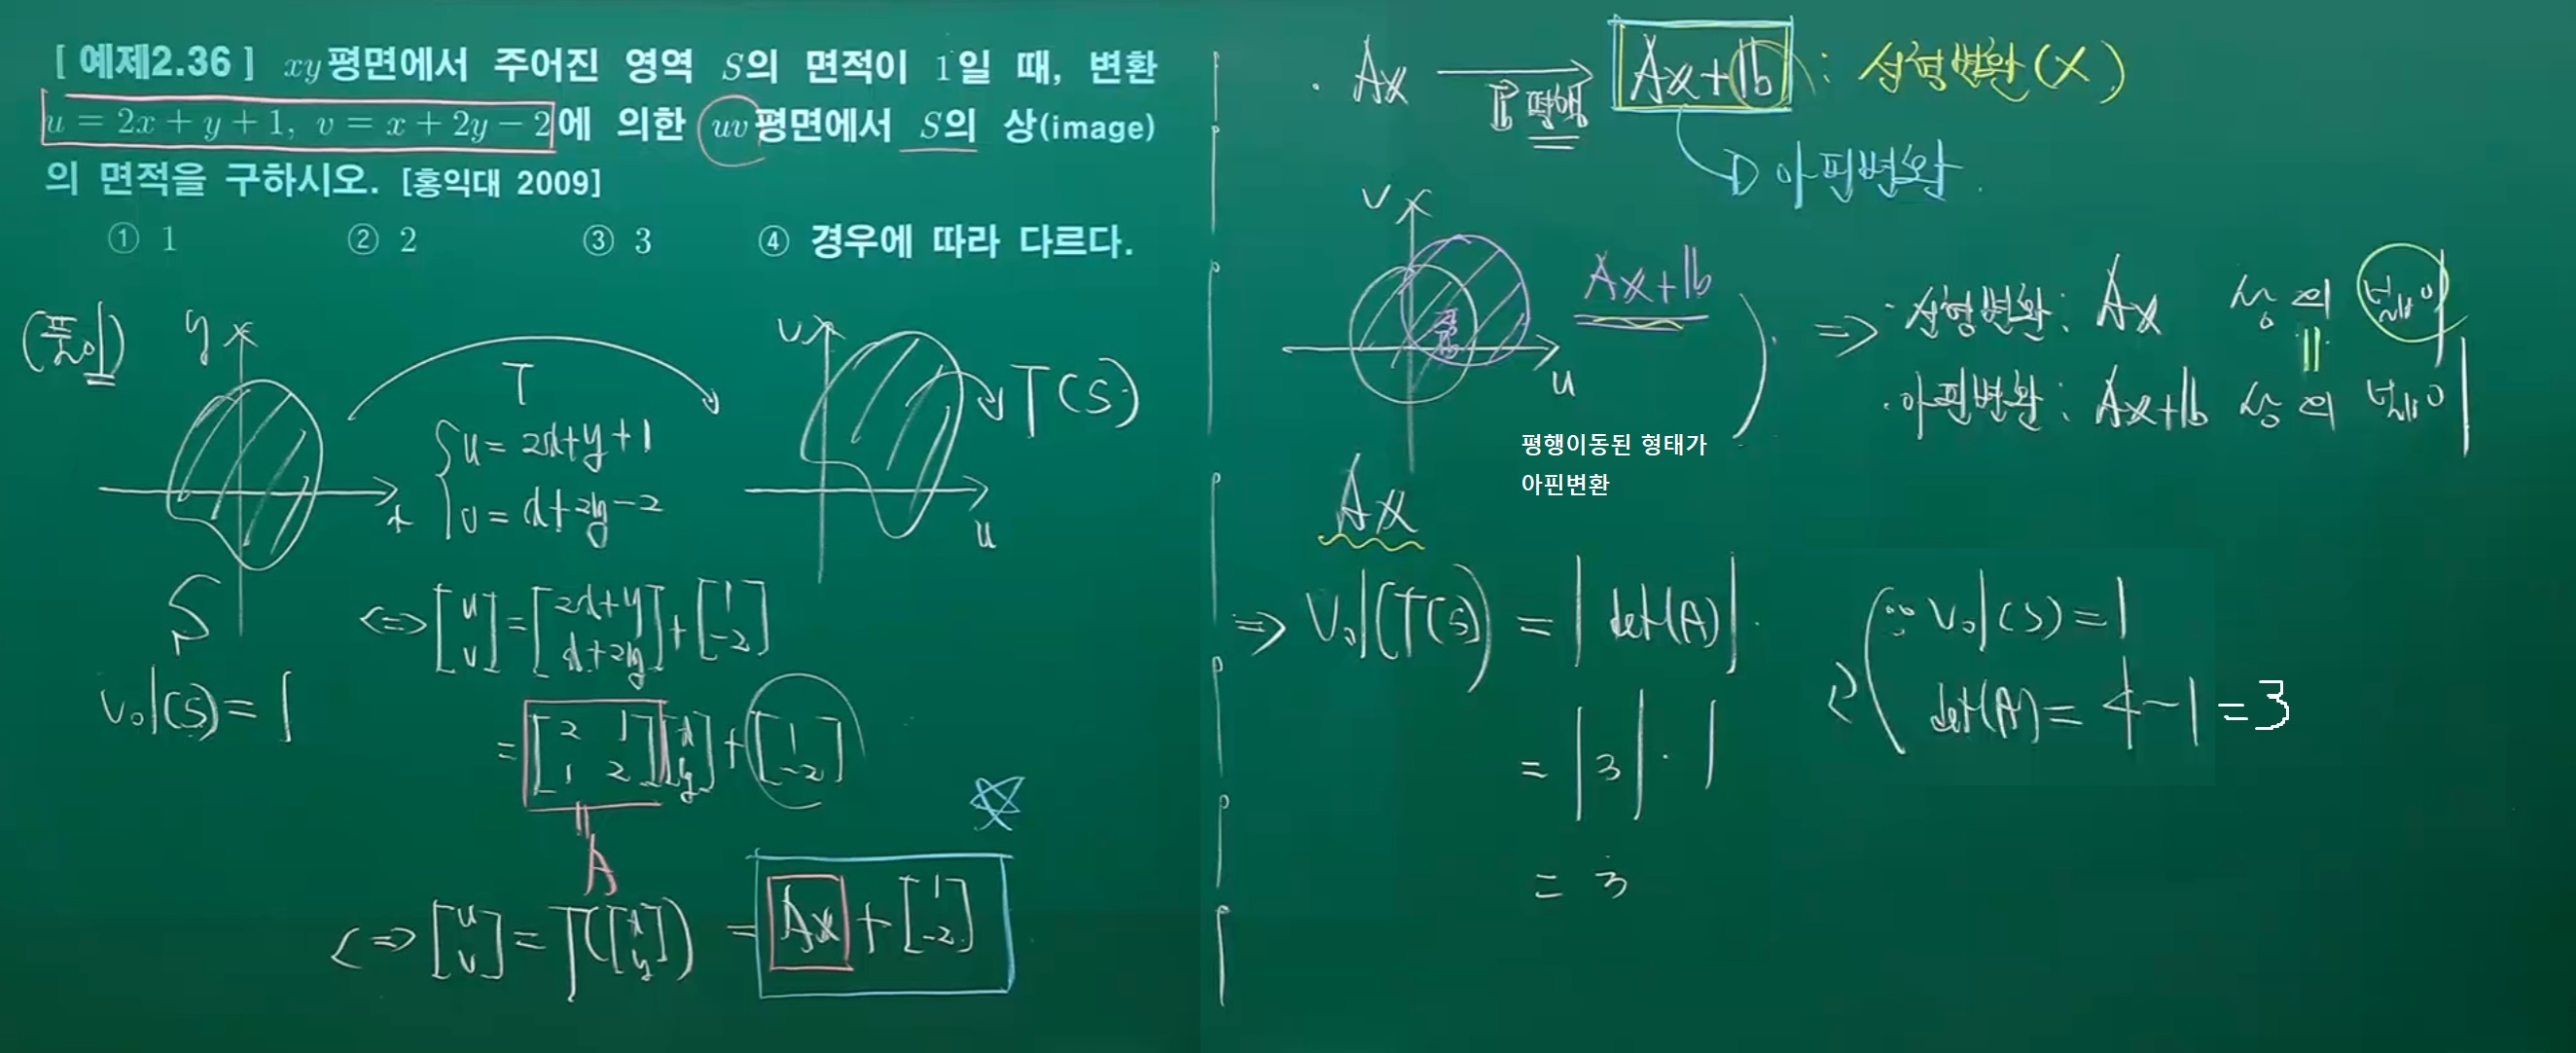 [ 예제2.36 ] xy평면에서 주어진 영역 S의 면적이 1일 때, 변환
u = 2x + y + 1, v = x + 2y − 2에 의한 uv평면에서 S의 상(image)
의 면적을 구하시오. [홍익대 2009]
① 1 ② 2 ③ 3 ④ 경우에 따라 다르다.
(풀이)
y
x
S
vol(S) = 1
T
u = 2x+y+1
v = x+2y-2
v
u
T(S)
<=> [u v] = [2x+y x+2y] + [1 -2]
= [2 1 1 2][x y] + [1 -2]
A
<=> [u v] = T([x y]) = Ax + [1 -2]
· Ax → Ax+b : 선형변환(X)
평행
아핀변환
v
u
Ax+b
평행이동된 형태가
아핀변환
Ax
=> · 선형변환: Ax 상의 넓이
||
· 아핀변환: Ax+b 상의 넓이
=> Vol(T(S)) = |det(A)| ·
= |3| · 1
= 3
∵ Vol(S) = 1
det(A) = 4-1 = 3